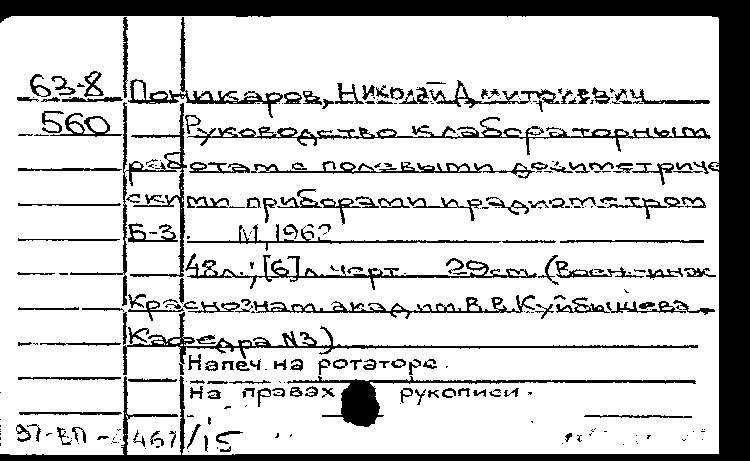 63-8 Поникаров, Николай Дмитриевич
560 Руководство к лабораторным
работам с полевыми дозиметриче
скими приборами и радиометром
Б-3. М, 1962
48л.; [6] л. черт. 29см. (Воен.-инж
Краснознам. акад. им. В.В. Куйбышева.
Кафедра N3)
Напеч. на ротаторе.
На правах рукописи.